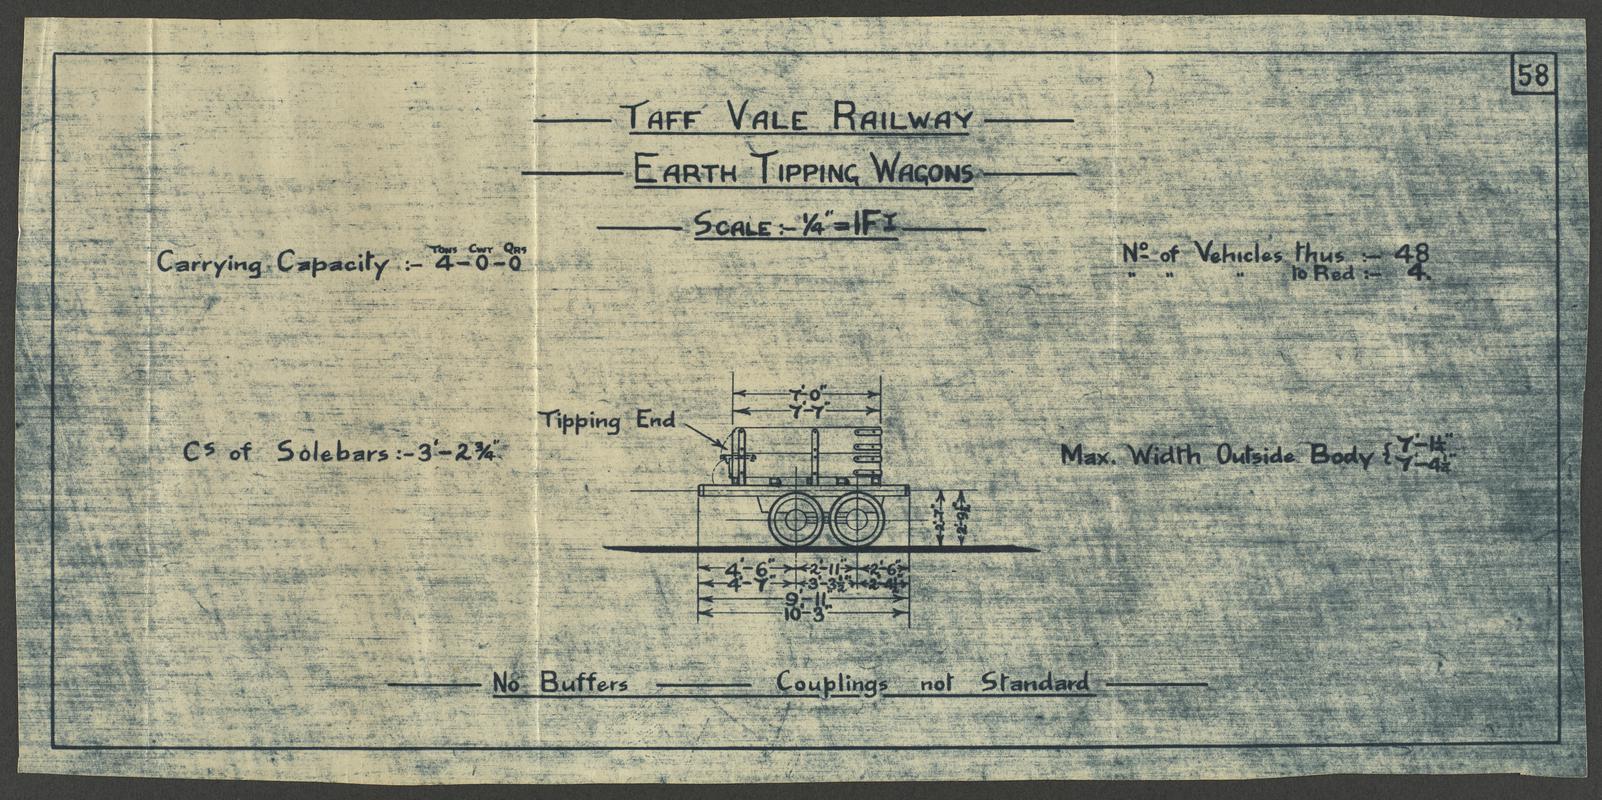 58
TAFF VALE RAILWAY
EARTH TIPPING WAGONS
SCALE:- ¼"=1FT
Carrying Capacity :- Tons 4 - Cwt 0 - Qrs 0
No of Vehicles thus :- 48
" " " to Red :- 4.
7'-0"
7'-7"
Tipping End
Cs of Solebars:- 3'-2¾"
Max. Width Outside Body { 7'-1¼"
7'-4½"
2'-7" 2'-9½"
4'-6" 2'-11" 2'-6"
4'-7" 3'-3½" 2'-4½"
9'-11"
10'-3"
No Buffers Couplings not Standard